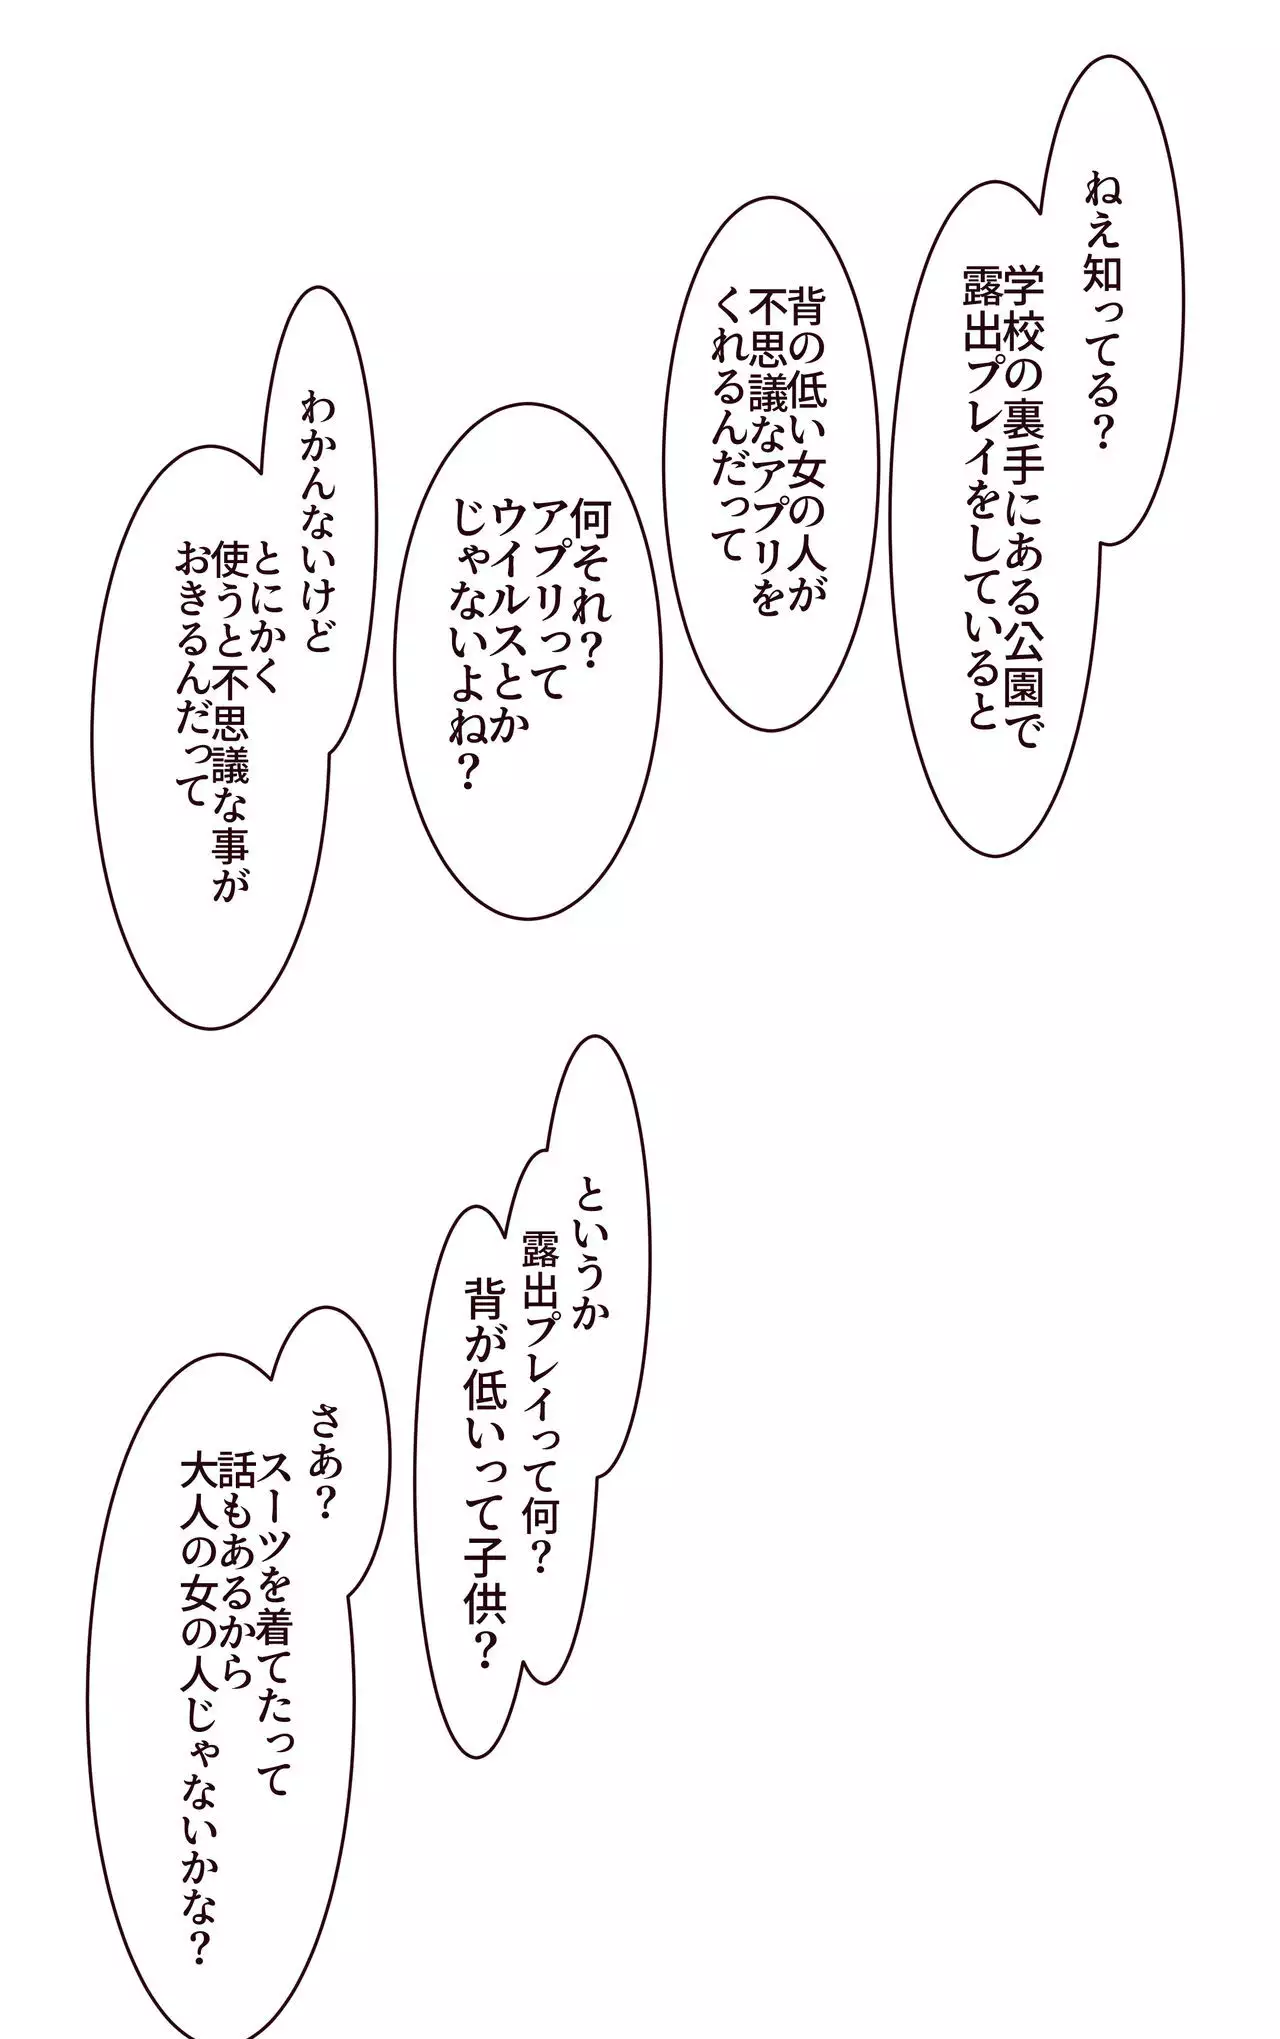 ねえ知ってる？
学校の裏手にある公園で
露出プレイをしていると
背の低い女の人が
不思議なアプリを
くれるんだって
何それ？
アプリって
ウイルスとか
じゃないよね？
わかんないけど
とにかく
使うと不思議な事が
おきるんだって
というか
露出プレイって何？
背が低いって子供？
さあ？
スーツを着てたって
話もあるから
大人の女の人じゃないかな？